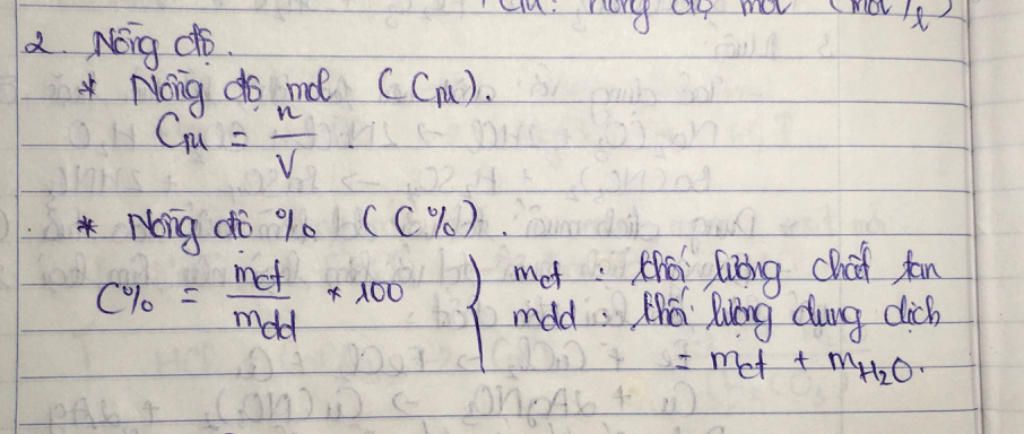 CM: nồng độ mol (mol/l)
2. Nồng độ.
* Nồng độ mol (CM).
CM = n/V
* Nồng độ % (C%).
C% = mct/mdd * 100
mct : khối lượng chất tan
mdd : khối lượng dung dịch
= mct + mH₂O.